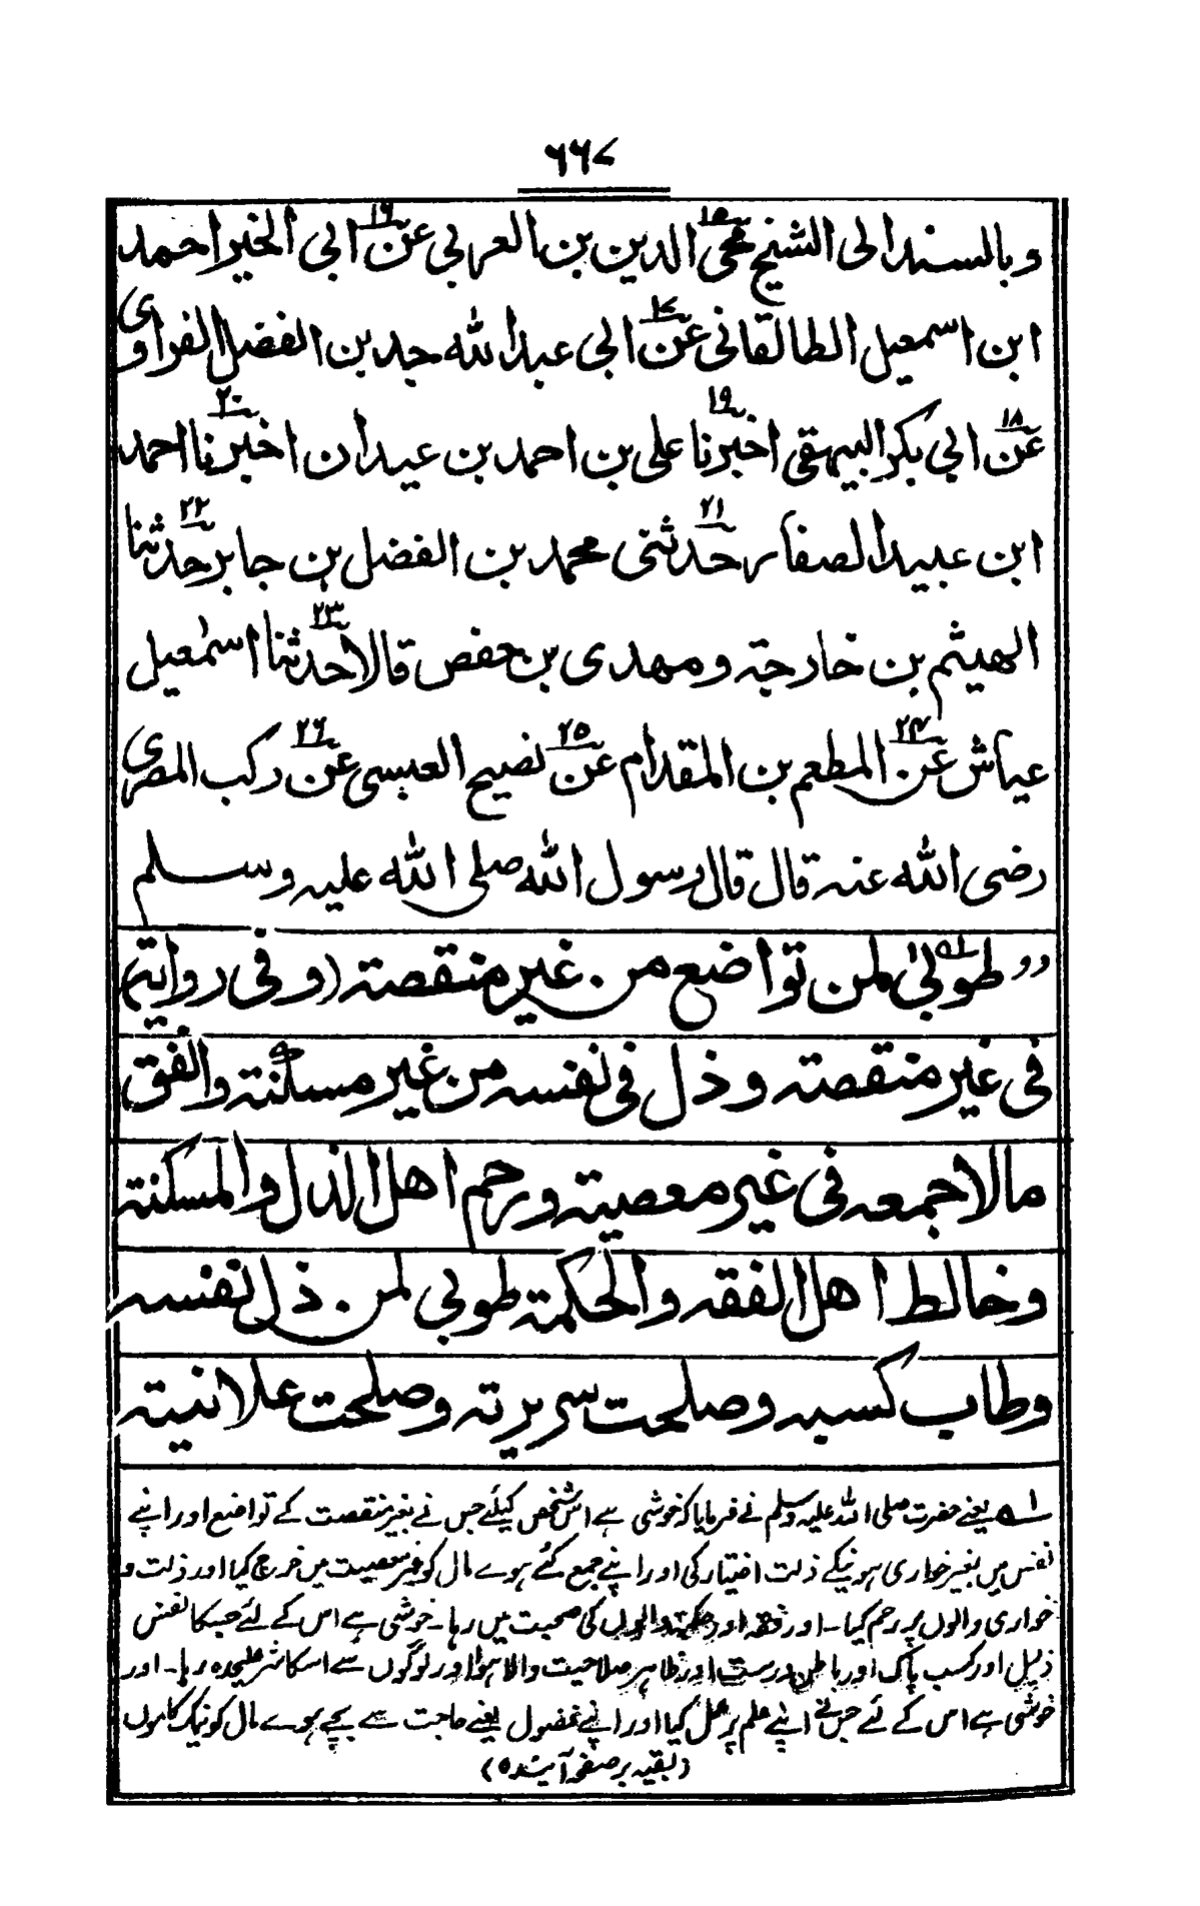 ٦٦٧
وبالسند الى الشيخ محى الدين بن العربي عن ابي الخير احمد
ابن اسمعيل الطالقانى عن ابي عبد الله جد بن الفضل الفراوى
عن ابي بكر البيهقى اخبرنا على بن احمد بن عبدان اخبرنا احمد
ابن عبيد الصفار حدثنى محمد بن الفضل بن جابر حدثنا
الهيثم بن خارجة ومهدى بن حفص قالا حدثنا اسمٰعيل
عياش عن المطعم بن المقدام عن نصيح العبسى عن ركب المصرى
رضى الله عنه قال قال رسول الله صلى الله عليه وسلم
,, طوبىٰ لمن تواضع من غير منقصة (وفى رواية)
فى غير منقصة وذل فى نفسه من غير مسكنة وانفق
مالا جمعه فى غير معصية ورحم اهل الذل والمسكنة
وخالط اهل الفقه والحكمة طوبى لمن ذل نفسه
وطاب كسبه وصلحت سريرته وصلحت علانيته
۱ یعنے حضرت صلی اللہ علیہ وسلم نے فرمایا کہ خوشی ہے اس شخص کیلئے جس نے بغیر منقصت کے تواضع اور اپنے
نفس میں بغیر خواری ہونیکے ذلت اختیار کی اور اپنے جمع کئے ہوے مال کو غیر معصیت میں خرچ کیا اور ذلت و
خواری والوں پر رحم کیا۔ اور فقہ اور حکمت والوں کی صحبت میں رہا۔ خوشی ہے اس کے لئے جسکا نفس
ذلیل اور کسب پاک اور باطن درست اور ظاہر صلاحیت والا ہوا اور لوگوں سے اسکا شر علیحدہ رہا۔ اور
خوشی ہے اس کے لئے جس نے اپنے علم پر عمل کیا اور اپنے فضول یعنے حاجت سے بچے ہوے مال کو نیک کاموں
(بقیہ بر صفحہ آیندہ)